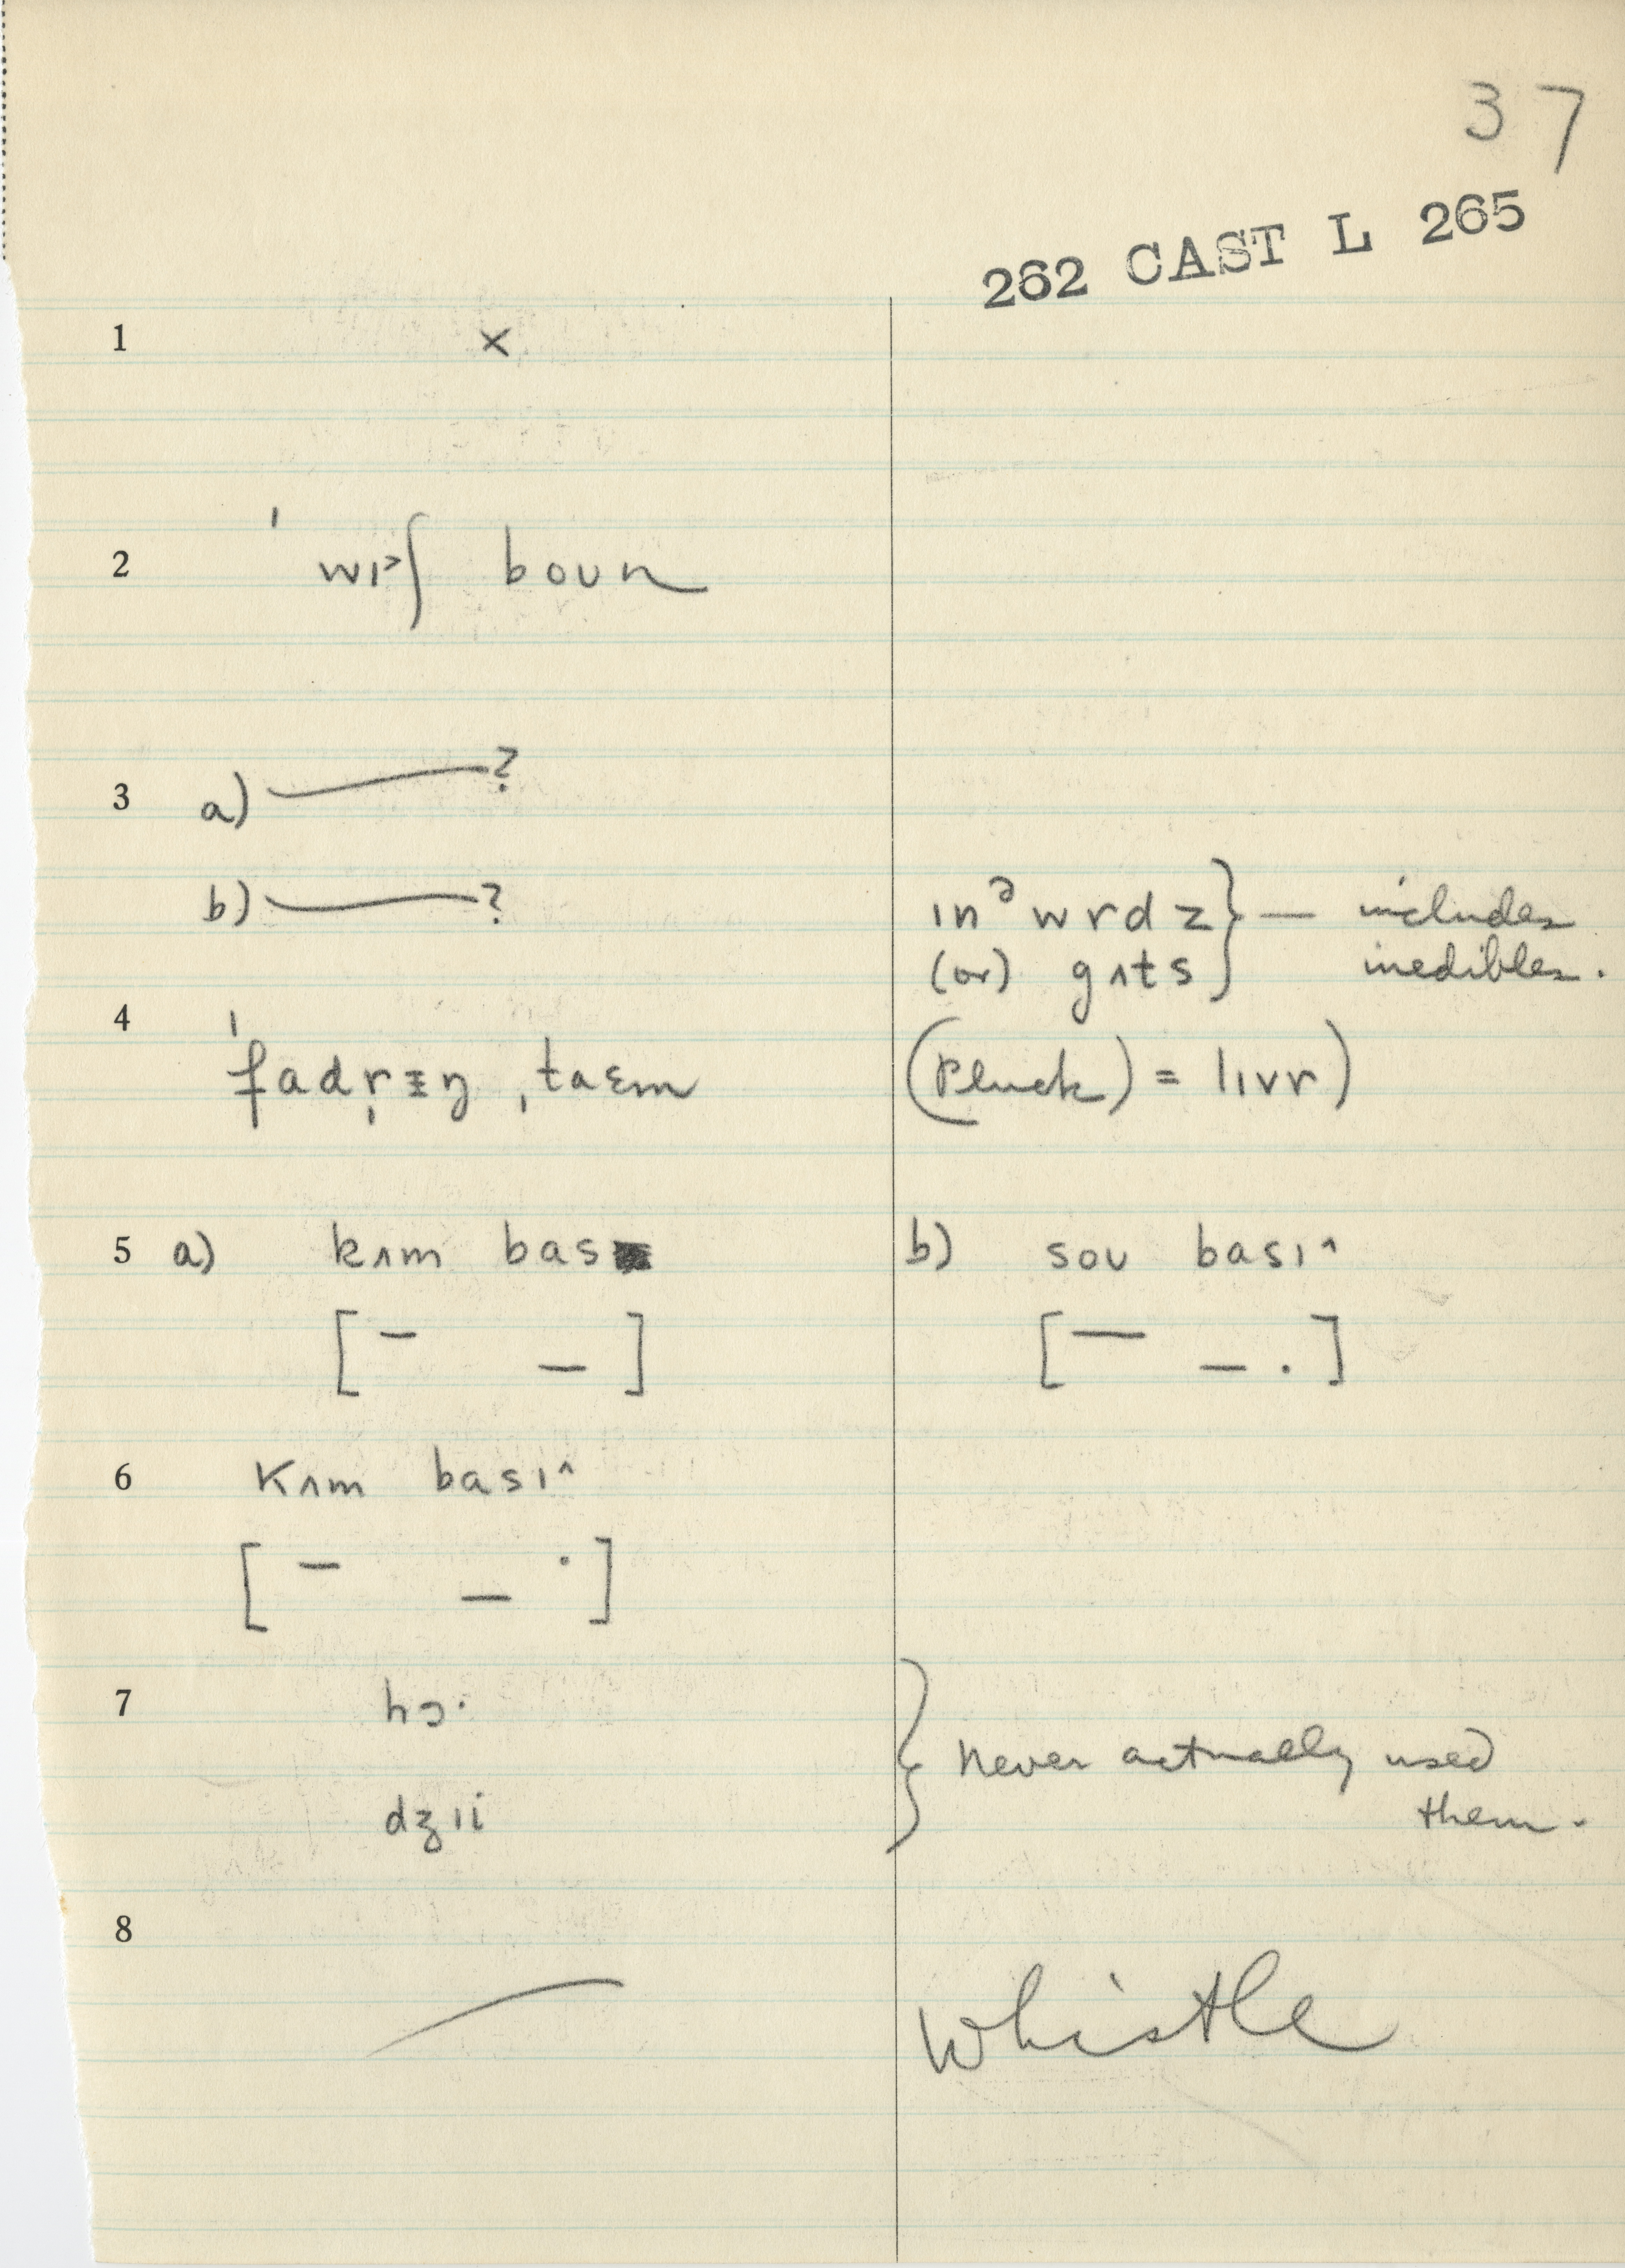 37
262 CAST L 265
1 ×
2 ˈwɪʃ boun
3 a) ——?
b) ——? ɪnᵊwrdz } — includes
(or) gʌts } inedibles.
4 ˈfadr̩ɪŋ ˌtaɛm (Pluck) = lɪvr)
5 a) kʌm bas b) sou basɪ^
[ – – ] [ — – · ]
6 Kʌm basɪ^
[ – – · ]
7 hɔ· } Never actually used
dʒɪi them.
8 — Whistle